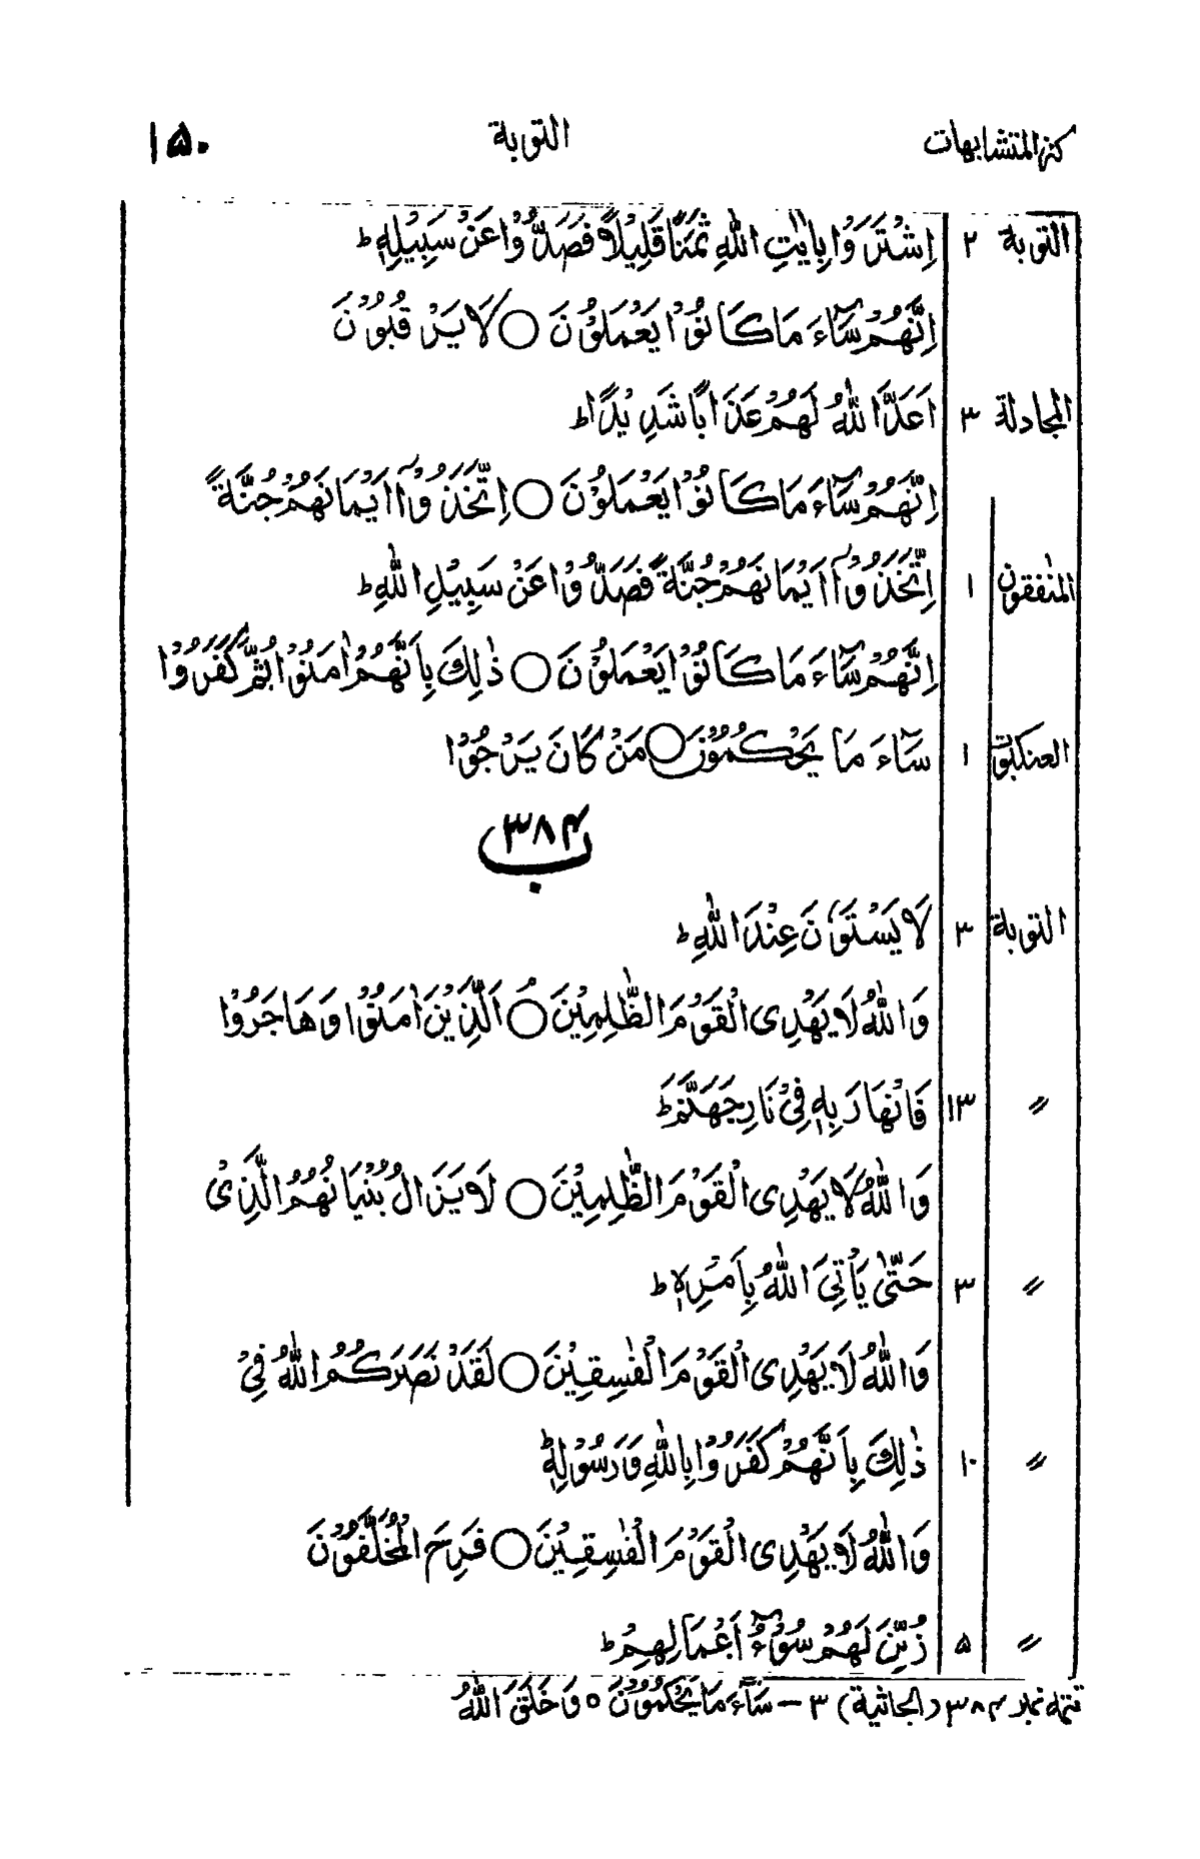 كنز المتشابهات التوبة ۱۵۰
التوبة ۲ اِشْتَرَوْا بِاٰيٰتِ اللّٰهِ ثَمَنًا قَلِيْلًا فَصَدُّوْا عَنْ سَبِيْلِهٖ ؕ
اِنَّهُمْ سَآءَ مَا كَانُوْا يَعْمَلُوْنَ ○ لَا يَرْقُبُوْنَ
المجادلة ۳ اَعَدَّ اللّٰهُ لَهُمْ عَذَابًا شَدِيْدًا ؕ
اِنَّهُمْ سَآءَ مَا كَانُوْا يَعْمَلُوْنَ ○ اِتَّخَذُوْۤا اَيْمَانَهُمْ جُنَّةً
المنٰفقون ۱ اِتَّخَذُوْۤا اَيْمَانَهُمْ جُنَّةً فَصَدُّوْا عَنْ سَبِيْلِ اللّٰهِ ؕ
اِنَّهُمْ سَآءَ مَا كَانُوْا يَعْمَلُوْنَ ○ ذٰلِكَ بِاَنَّهُمْ اٰمَنُوْا ثُمَّ كَفَرُوْا
العنكبوت ۱ سَآءَ مَا يَحْكُمُوْنَ ○ مَنْ كَانَ يَرْجُوْا
ب ۳۸۴
التوبة ۳ لَا يَسْتَوٗنَ عِنْدَ اللّٰهِ ؕ
وَاللّٰهُ لَا يَهْدِى الْقَوْمَ الظّٰلِمِيْنَ ○ اَلَّذِيْنَ اٰمَنُوْا وَهَاجَرُوْا
〃 ۱۳ فَانْهَارَ بِهٖ فِىْ نَارِ جَهَنَّمَ ؕ
وَاللّٰهُ لَا يَهْدِى الْقَوْمَ الظّٰلِمِيْنَ ○ لَا يَزَالُ بُنْيَانُهُمُ الَّذِىْ
〃 ۳ حَتّٰى يَاْتِىَ اللّٰهُ بِاَمْرِهٖ ؕ
وَاللّٰهُ لَا يَهْدِى الْقَوْمَ الْفٰسِقِيْنَ ○ لَقَدْ نَصَرَكُمُ اللّٰهُ فِىْ
〃 ۱۰ ذٰلِكَ بِاَنَّهُمْ كَفَرُوْا بِاللّٰهِ وَرَسُوْلِهٖ ؕ
وَاللّٰهُ لَا يَهْدِى الْقَوْمَ الْفٰسِقِيْنَ ○ فَرِحَ الْمُخَلَّفُوْنَ
〃 ۵ زُيِّنَ لَهُمْ سُوْٓءُ اَعْمَالِهِمْ ؕ
تتمه نمبر ۳۸۴ (الجاثية) ۳ - سَآءَ مَا يَحْكُمُوْنَ ○ وَخَلَقَ اللّٰهُ